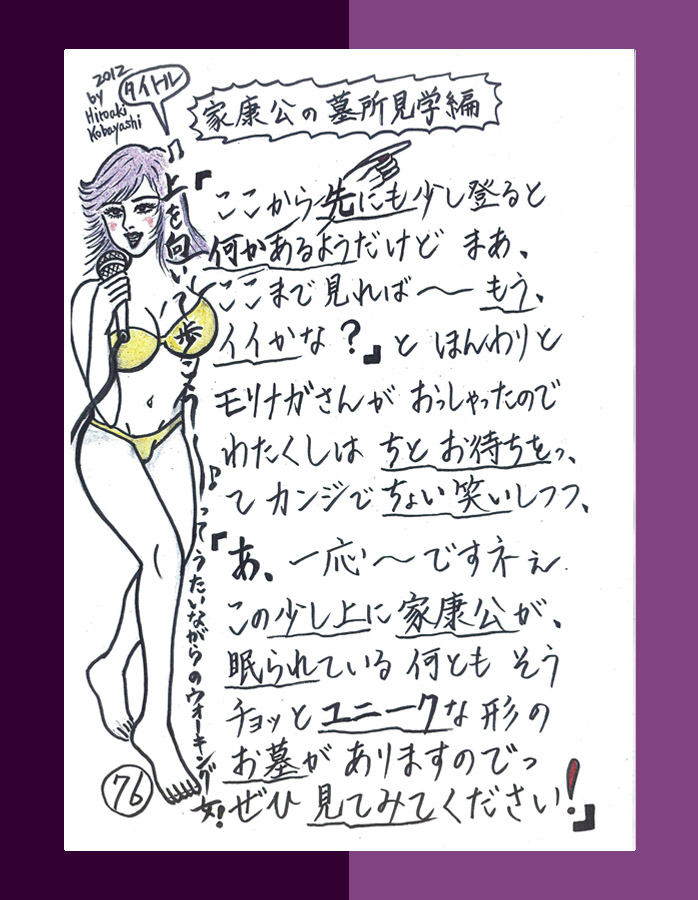 2012
by
Hiroaki
Kobayashi
タイトル
家康公の墓所見学編
♫上を向いて歩こう〜♪ってうたいながらのウォーキング女!
『ここから先にも少し登ると
何かあるようだけど まあ、
ここまで見れば〜もう、
イイかな?』と ほんわりと
モリナガさんが おっしゃったので
わたくしは ちとお待ちをっ、
て カンジで ちょい笑いしつつ、
『あ、一応〜ですネぇ
この少し上に家康公が、
眠られている 何とも そう
チョッとユニークな形の
お墓が ありますのでっ
ぜひ 見てみてください!』
76